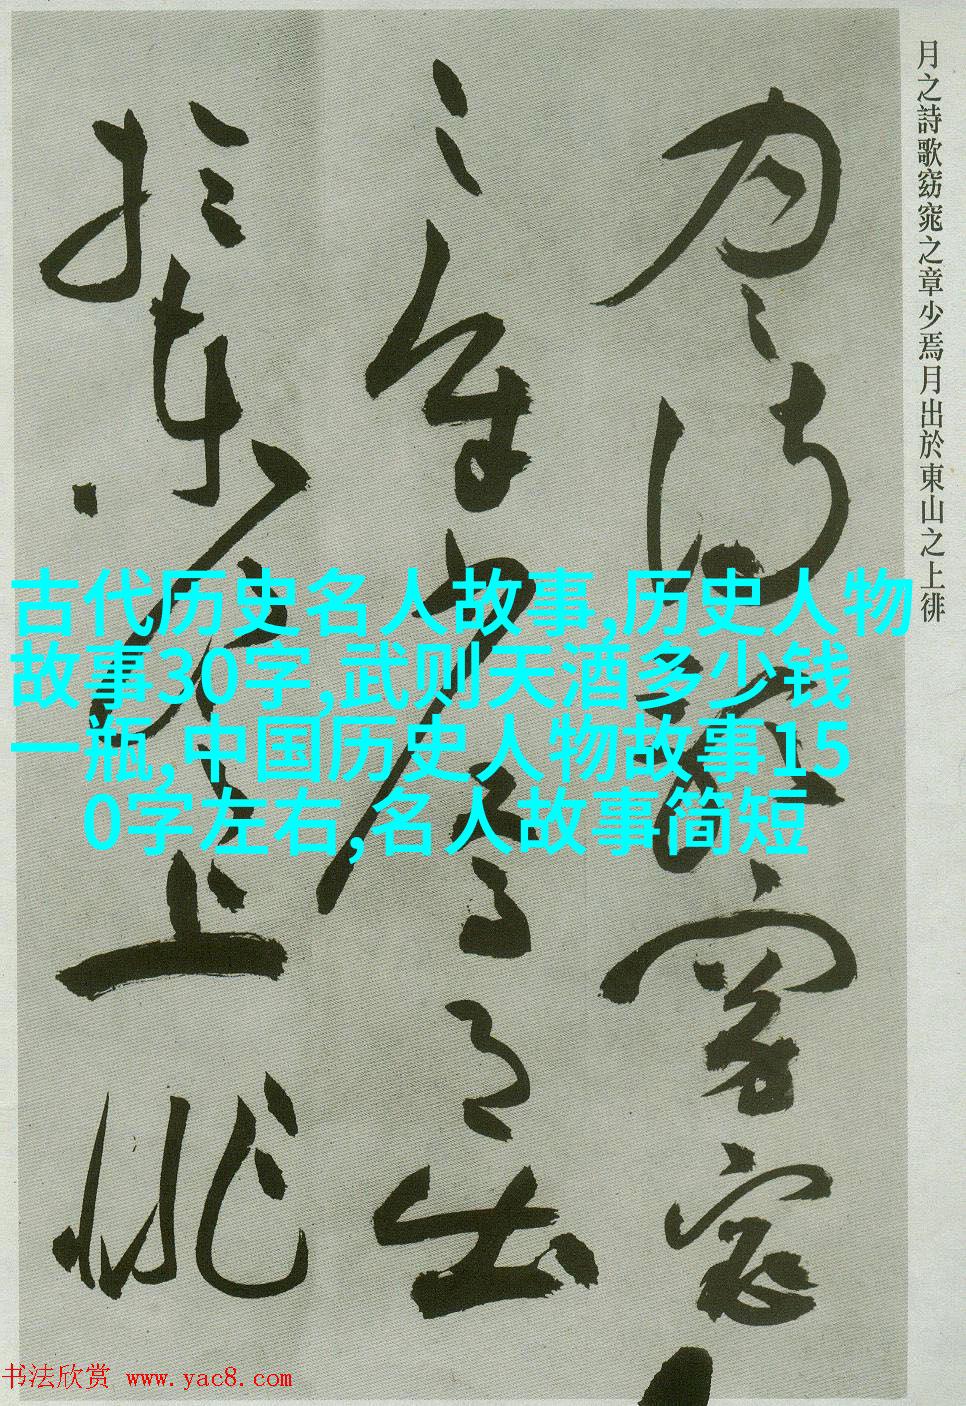 月之詩歌窈窕之章少焉月出於東山之上徘
月之詩歌窈窕
之章少焉月出
於東山之上徘
古代历史名人故事,历史人物
故事30字,武则天酒多少钱
一瓶,中国历史人物故事15
0字左右,名人故事简短
书法欣赏 www.yac8.com